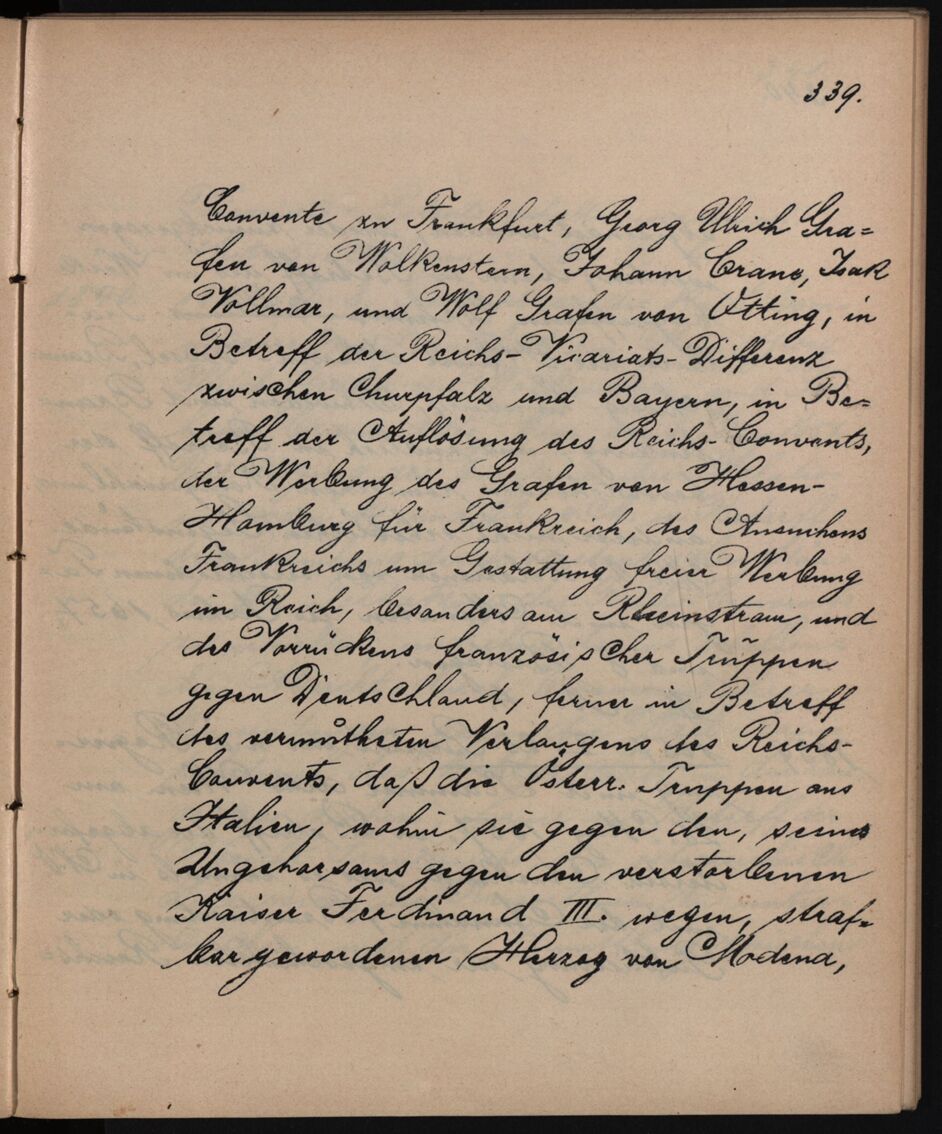 339.
Convente zu Frankfurt, Georg Ullrich Gra=
fen von Wolkenstern, Johann Crane, Isak
Vollmar, und Wolf Grafen von Otting, in
Betreff der Reichs-Vicariats-Differenz
zwischen Churpfalz und Bayern, in Be=
treff der Auflösung des Reichs-Convents,
der Werbung des Grafen von Hessen-
Homburg für Frankreich, des Ansuchens
Frankreichs um Gestattung freier Werbung
im Reich, besonders am Rheinstrom, und
des Vorrückens französischer Truppen
gegen Deutschland, ferner in Betreff
des vermůtheten Verlangens des Reichs-
Convents, daß die Österr. Truppen aus
Italien, wohin sie gegen den, seines
Ungehorsams gegen den verstorbenen
Kaiser Ferdinand III. wegen, straf=
bar gewordenen Herzog von Modena,